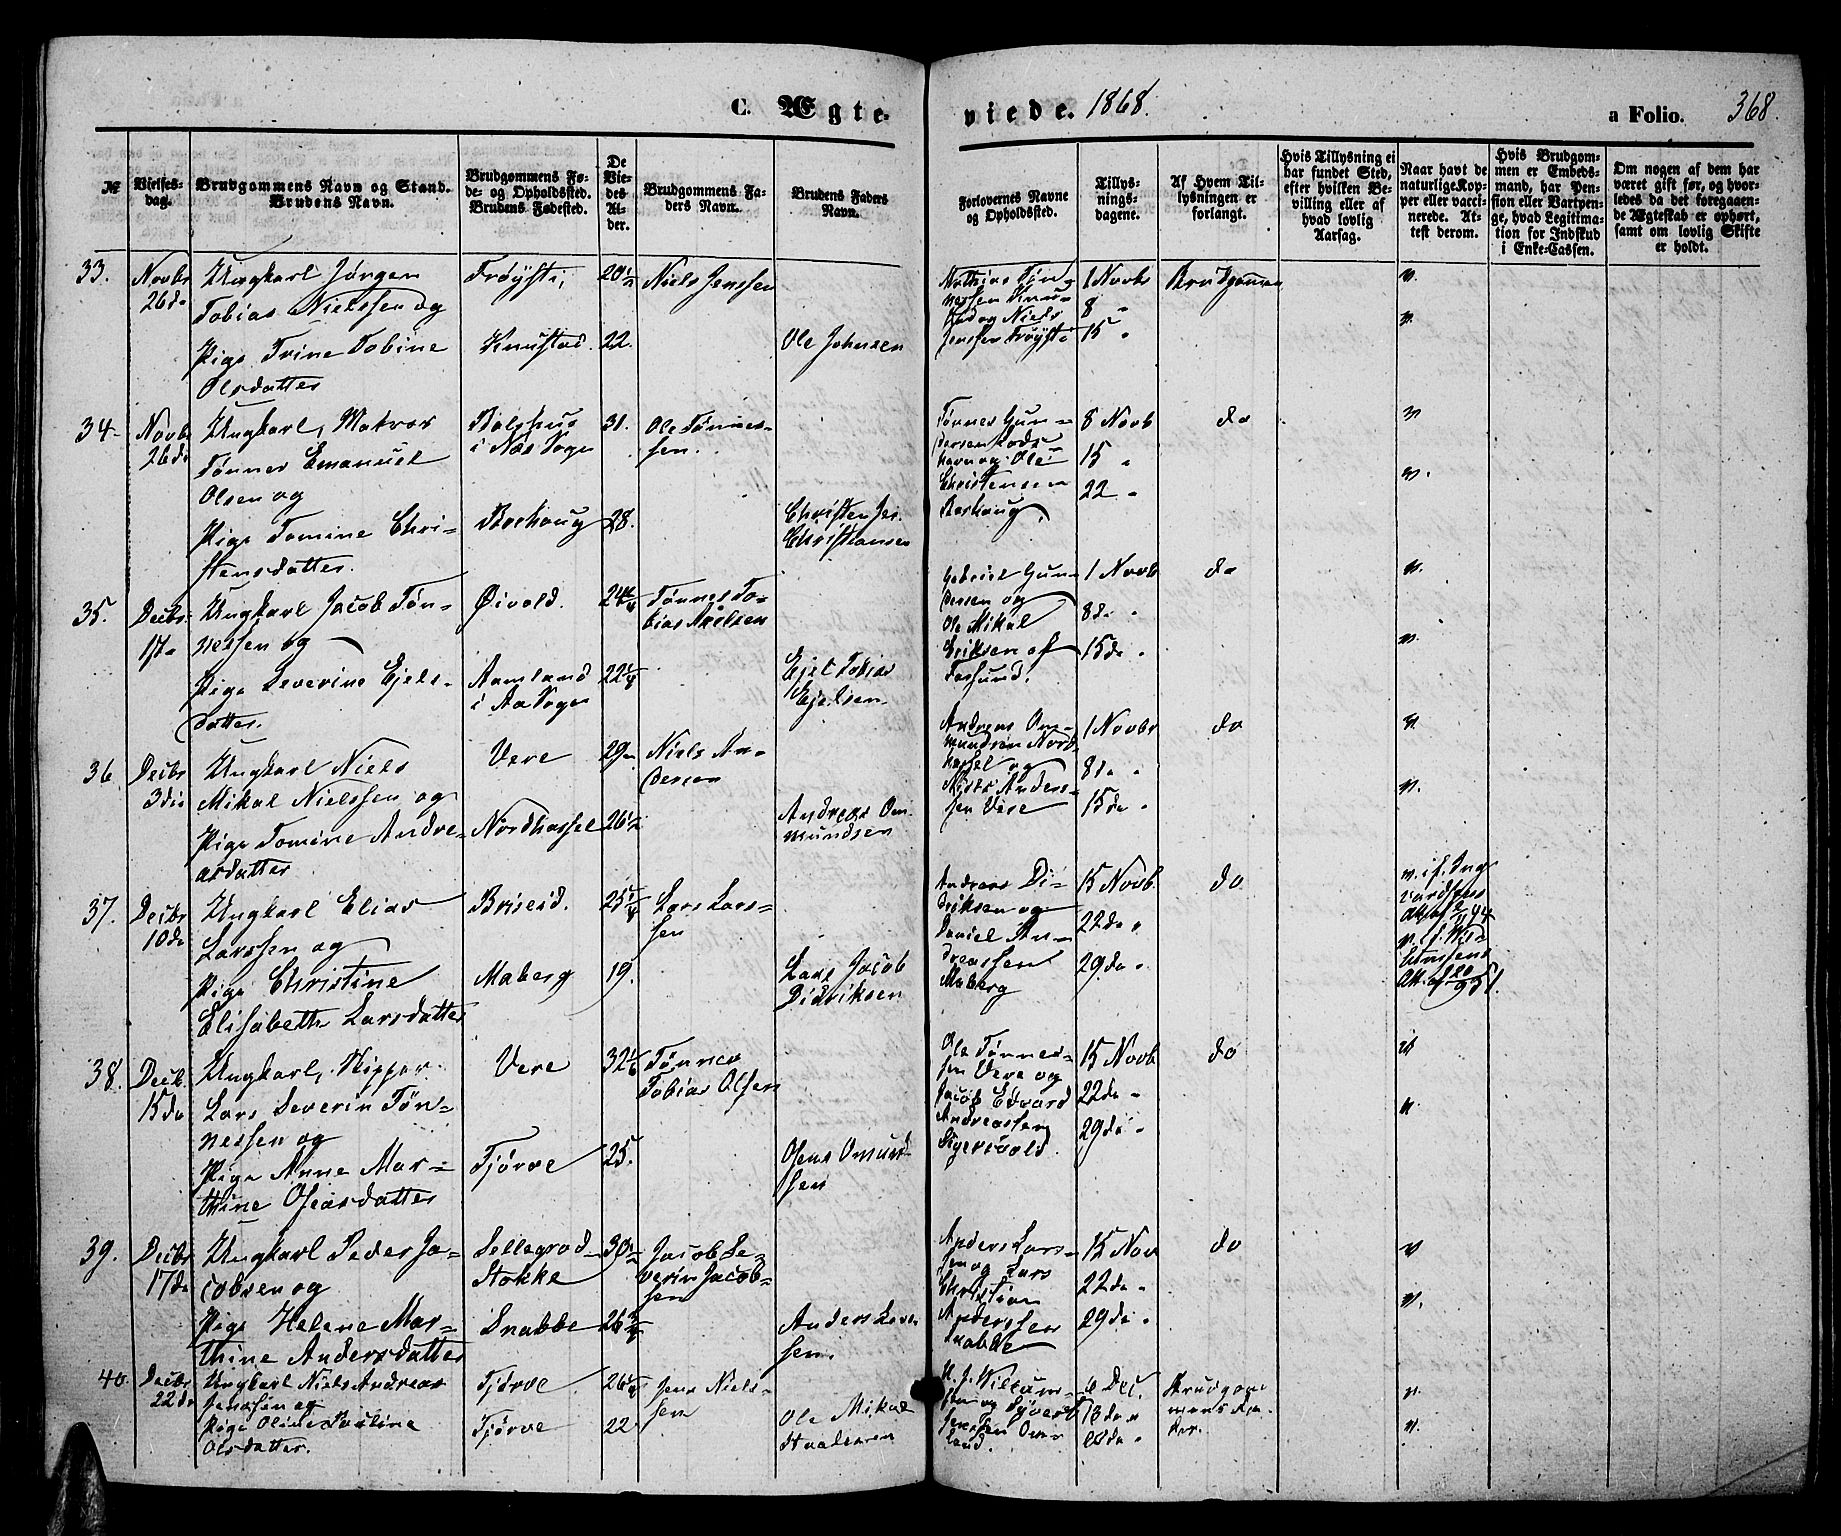 C. Ægte-
viede. 1868.
a Folio. 368.
№
Vielses-
dag.
Brudgommens Navn og Stand.
Brudens Navn.
Brudgommens Fø-
de- og Opholdssted.
Brudens Fødested.
De
Vie-
des
Al-
der.
Brudgommens Fa-
ders Navn.
Brudens Faders
Navn.
Forlovernes Navne
og Opholdssted.
Tillys-
nings-
dagene.
Af Hvem Til-
lysningen er
forlangt.
Hvis Tillysning ei
har fundet Sted,
efter hvilken Be-
villing eller af
hvad lovlig
Aarsag.
Naar havt de
naturlige Kop-
per eller vacci-
nerede. At-
test derom.
Hvis Brudgom-
men er Embeds-
mand, har Pen-
sion eller Vartpen-
ge, hvad Legitima-
tion for Indskud
i Enke-Cassen.
Om nogen af dem har
været gift før, og hvor-
ledes da det foregaaen-
de Ægteskab er ophørt,
samt om lovlig Skifte
er holdt.
33.
Novbr
26de
Ungkarl Jørgen
Tobias Nielssen og
Pige Trine Tobine
Olsdatter
Trøysti,
Knustad.
20½
22.
Niels Jenssen
Ole Johnsen
Mathias Tøn-
nessen Knu-
stad og Niels
Jenssen Trøysti
1 Novbr
8 "
15 "
Brudgommen
v.
v.
34.
Novbr
26de
Ungkarl, Matros
Tønnes Emanuel
Olsen og
Pige Tomine Chri-
stensdatter.
Balshuus
i Næs Sogn
Borhaug
31.
28.
Ole Tønnes-
sen.
Christen
Christiansen
Tønnes Gun-
dersen Lods-
havn og Ole
Christensen
Borhaug.
8 Novb
15 "
22 "
do
v
v.
35.
Decbr
17de
Ungkarl Jacob Tøn-
nessen og
Pige Severine Ejels-
datter.
Øivold.
Aamland
i Aa Sogn
24¼
22¼
Tønnes To-
bias Nielsen
Ejel Tobias
Ejelsen
Gabriel Gun-
dersen og
Ole Mikal
Eriksen af
Farsund.
1 Novb
8de "
15de "
do
v.
v.
36
Decbr
3die
Ungkarl Niels
Mikal Nielssen og
Pige Tomine Andre-
asdatter
Vere
Nordhassel
29
26½
Niels An-
dersen
Andreas Om-
mundsen
Andreas Om-
mundsen Nord-
hassel og
Niels Anders-
sen Vere
1 Novbr
8de "
15de "
do
v
v.
37.
Decbr
10de
Ungkarl Elias
Larssen og
Pige Christine
Elisabeth Larsdatter
Briseid.
Maberg
25¼
19.
Lars Lars-
sen
Lars Jacob
Didriksen
Andreas Di-
driksen og
Daniel An-
dreassen
Maberg
15 Novb.
22de "
29de "
do
38.
Decb.
15de
Ungkarl, Skipper
Lars Severin Tøn-
nessen og
Pige Anne Mar-
thine Oseasdatter
Vere
Tjørve
32
25.
Tønnes
Tobias Olsen
Oseas Omund-
sen
Ole Tønnes-
sen Vere og
Jacob Edvard
Andreassen
15 Novb
22de "
29de "
do
v
v.
39.
Decbr
17de
Ungkarl Peder Ja-
cobsen og
Pige Helene Mar-
thine Andersdatter
Sellegrod
Stokke
Snabbe
30
26¾
Jacob Se-
verin Jacob-
sen
Anders Lars-
sen.
Anders Lars-
sen og Lars
Christian
Anderssen
Snabbe
15 Nov
22de "
29de "
do
v
v.
40
Decbr
22de
Ungkarl Niels Andreas
Jenssen og
Pige Oline Pauline
Olsdatter.
Tjørve
Tjørve
26¼
22
Jens Niels-
sen
Ole Mikal
6 Dec.
13de "
Brudgom-
mens
v.
v.